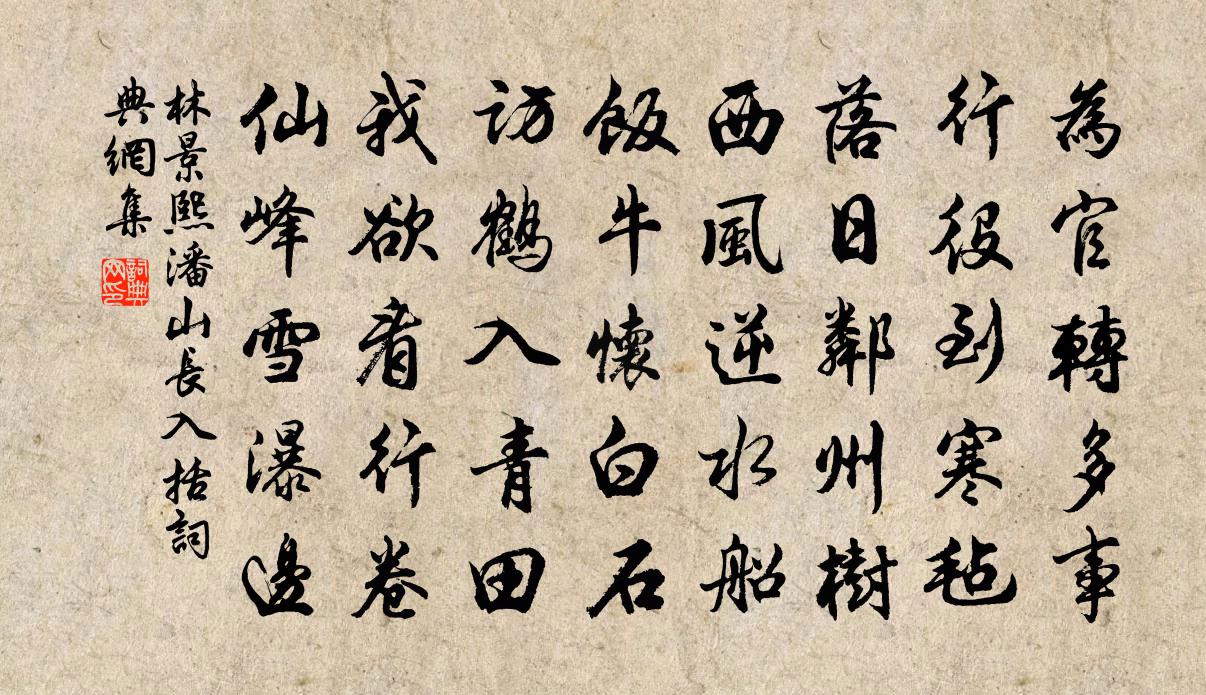 為官轉多事
行役到寒氈
落日鄰州樹
西風逆水船
飯牛懷白石
訪鶴入青田
我欲看行卷
仙峰雪瀑邊
林景熙潘山長入括詞
典網集
詞典網印